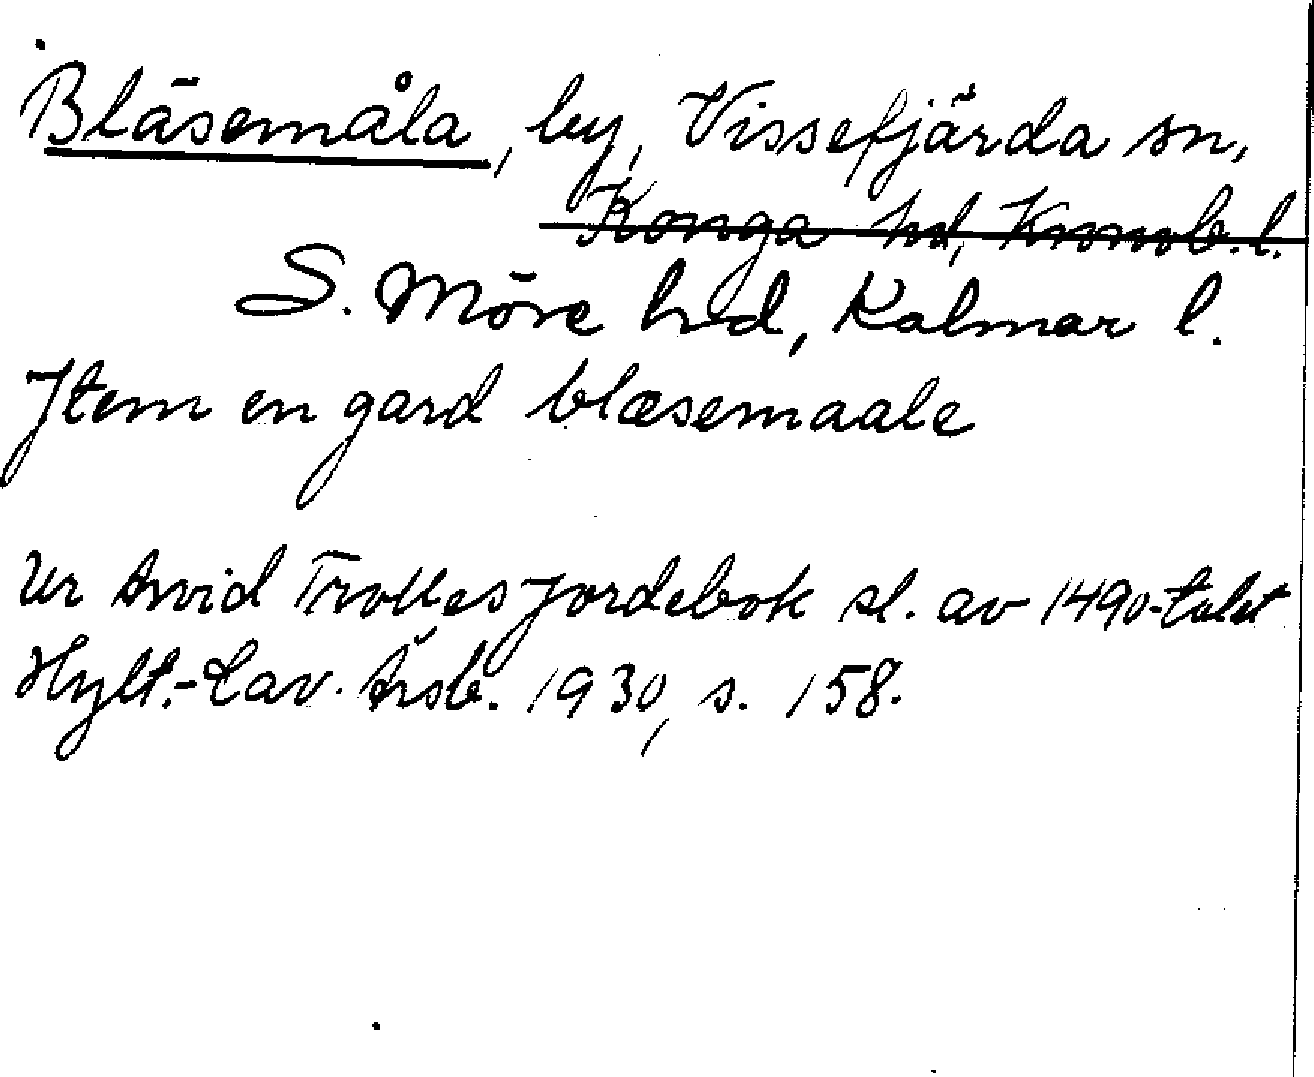 Bläsemåla, by, Vissefjärda sn,
Konga hd, Kronob. l.
S. Möre hd, Kalmar l.
Item en gard blæsemaale
Ur Arvid Trolles jordebok sl. av 1490-talet
Hylt.-Cav. Årsb. 1930, s. 158.